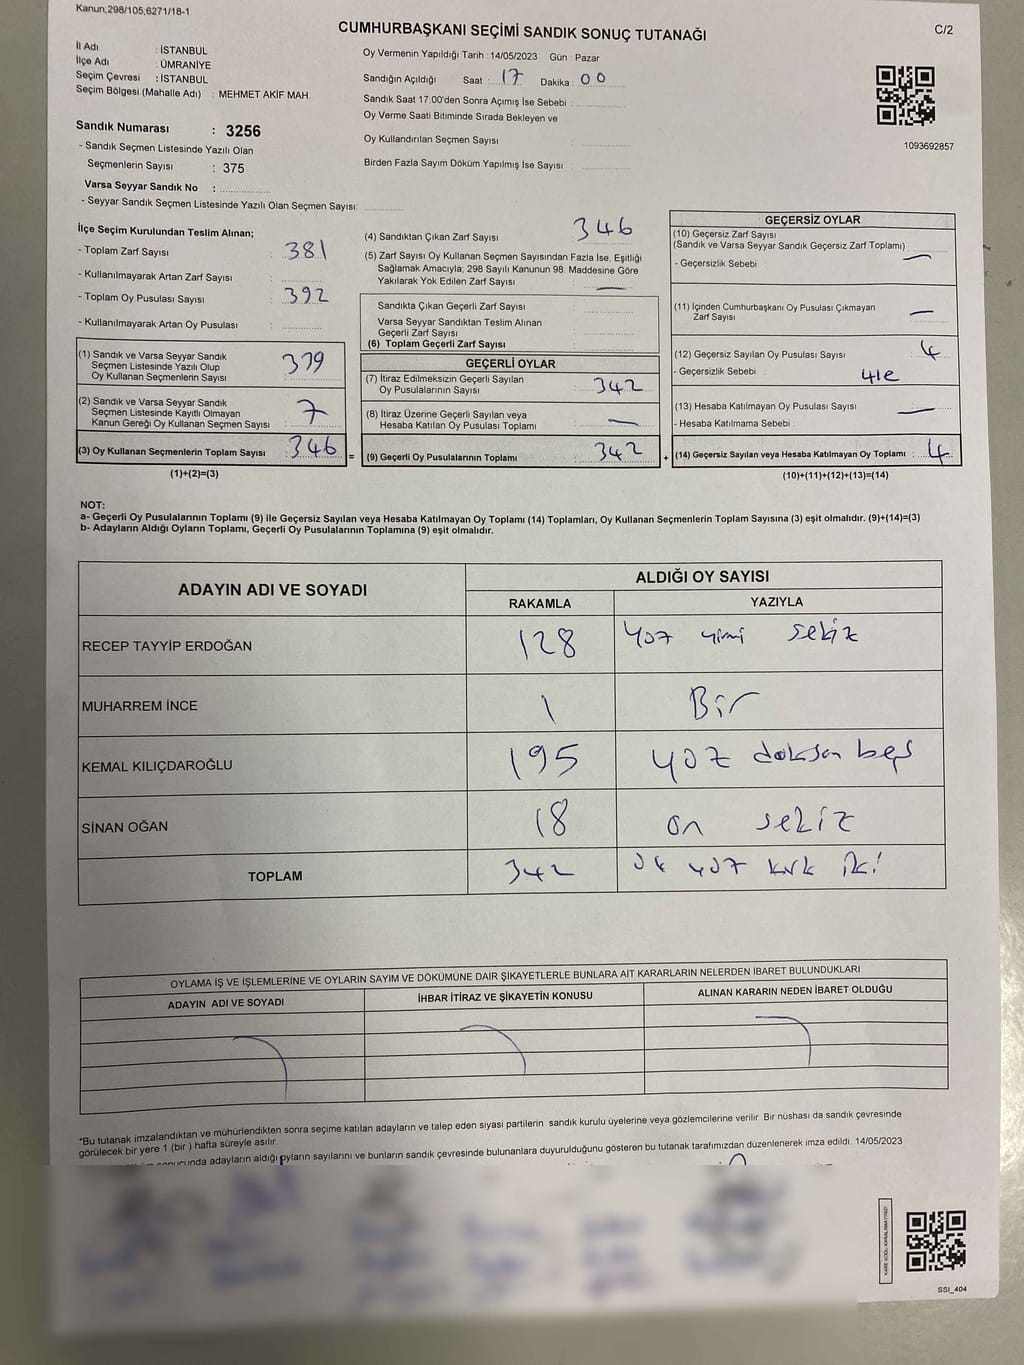 Kanun,298/105,6271/18-1
CUMHURBAŞKANI SEÇİMİ SANDIK SONUÇ TUTANAĞI
C/2
İl Adı : İSTANBUL
İlçe Adı : ÜMRANİYE
Seçim Çevresi : İSTANBUL
Seçim Bölgesi (Mahalle Adı) : MEHMET AKİF MAH.
Sandık Numarası : 3256
- Sandık Seçmen Listesinde Yazılı Olan
Seçmenlerin Sayısı : 375
Varsa Seyyar Sandık No :
- Seyyar Sandık Seçmen Listesinde Yazılı Olan Seçmen Sayısı:
Oy Vermenin Yapıldığı Tarih : 14/05/2023 Gün : Pazar
Sandığın Açıldığı Saat : 17 Dakika : 00
Sandık Saat 17:00'den Sonra Açımış İse Sebebi :
Oy Verme Saati Bitiminde Sırada Bekleyen ve
Oy Kullandırılan Seçmen Sayısı :
Birden Fazla Sayım Döküm Yapılmış İse Sayısı :
1093692857
İlçe Seçim Kurulundan Teslim Alınan;
- Toplam Zarf Sayısı : 381
- Kullanılmayarak Artan Zarf Sayısı :
- Toplam Oy Pusulası Sayısı : 392
- Kullanılmayarak Artan Oy Pusulası :
(1) Sandık ve Varsa Seyyar Sandık
Seçmen Listesinde Yazılı Olup
Oy Kullanan Seçmenlerin Sayısı : 339
(2) Sandık ve Varsa Seyyar Sandık
Seçmen Listesinde Kayıtlı Olmayan
Kanun Gereği Oy Kullanan Seçmen Sayısı : 7
(3) Oy Kullanan Seçmenlerin Toplam Sayısı : 346
(1)+(2)=(3)
=
(4) Sandıktan Çıkan Zarf Sayısı : 346
(5) Zarf Sayısı Oy Kullanan Seçmen Sayısından Fazla İse, Eşitliği
Sağlamak Amacıyla; 298 Sayılı Kanunun 98. Maddesine Göre
Yakılarak Yok Edilen Zarf Sayısı : —
Sandıkta Çıkan Geçerli Zarf Sayısı :
Varsa Seyyar Sandıktan Teslim Alınan
Geçerli Zarf Sayısı :
(6) Toplam Geçerli Zarf Sayısı :
GEÇERLİ OYLAR
(7) İtiraz Edilmeksizin Geçerli Sayılan
Oy Pusulalarının Sayısı : 342
(8) İtiraz Üzerine Geçerli Sayılan veya
Hesaba Katılan Oy Pusulası Toplamı : —
(9) Geçerli Oy Pusulalarının Toplamı : 342
+
GEÇERSİZ OYLAR
(10) Geçersiz Zarf Sayısı
(Sandık ve Varsa Seyyar Sandık Geçersiz Zarf Toplamı) : —
- Geçersizlik Sebebi :
(11) İçinden Cumhurbaşkanı Oy Pusulası Çıkmayan
Zarf Sayısı : —
(12) Geçersiz Sayılan Oy Pusulası Sayısı : 4
- Geçersizlik Sebebi :
(13) Hesaba Katılmayan Oy Pusulası Sayısı : —
- Hesaba Katılmama Sebebi :
(14) Geçersiz Sayılan veya Hesaba Katılmayan Oy Toplamı : 4
(10)+(11)+(12)+(13)=(14)
NOT:
a- Geçerli Oy Pusulalarının Toplamı (9) ile Geçersiz Sayılan veya Hesaba Katılmayan Oy Toplamı (14) Toplamları, Oy Kullanan Seçmenlerin Toplam Sayısına (3) eşit olmalıdır. (9)+(14)=(3)
b- Adayların Aldığı Oyların Toplamı, Geçerli Oy Pusulalarının Toplamına (9) eşit olmalıdır.
ADAYIN ADI VE SOYADI
ALDIĞI OY SAYISI
RAKAMLA YAZIYLA
RECEP TAYYİP ERDOĞAN 128 yüz yimi sekiz
MUHARREM İNCE 1 Bir
KEMAL KILIÇDAROĞLU 195 yüz doksan beş
SİNAN OĞAN 18 on sekiz
TOPLAM 342 yüz kırk iki
OYLAMA İŞ VE İŞLEMLERİNE VE OYLARIN SAYIM VE DÖKÜMÜNE DAİR ŞİKAYETLERLE BUNLARA AİT KARARLARIN NELERDEN İBARET BULUNDUKLARI
ADAYIN ADI VE SOYADI İHBAR İTİRAZ VE ŞİKAYETİN KONUSU ALINAN KARARIN NEDEN İBARET OLDUĞU
*Bu tutanak imzalandıktan ve mühürlendikten sonra seçime katılan adayların ve talep eden siyasi partilerin sandık kurulu üyelerine veya gözlemcilerine verilir. Bir nüshası da sandık çevresinde
görülecek bir yere 1 (bir ) hafta süreyle asılır.
adayların aldığı oyların sayılarını ve bunların sandık çevresinde bulunanlara duyurulduğunu gösteren bu tutanak tarafımızdan düzenlenerek imza edildi. 14/05/2023
KARE KODU KARALAMAYINIZ!
SSI_404